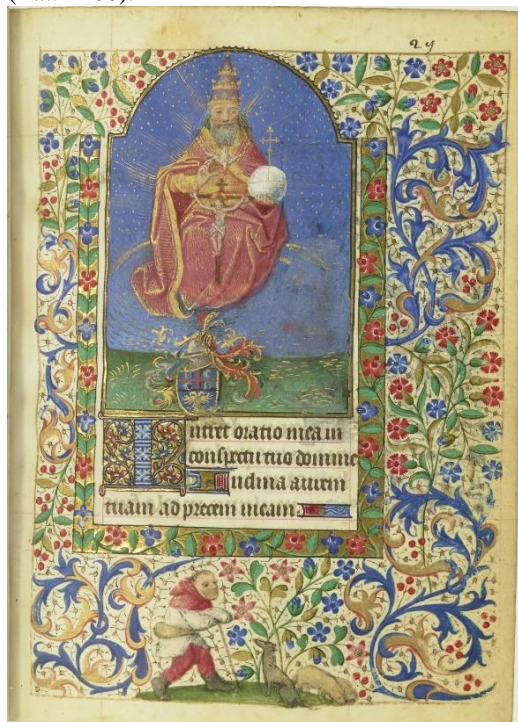 29
Intret oratio mea in
conspectu tuo domine
Inclina aurem
tuam ad precem meam